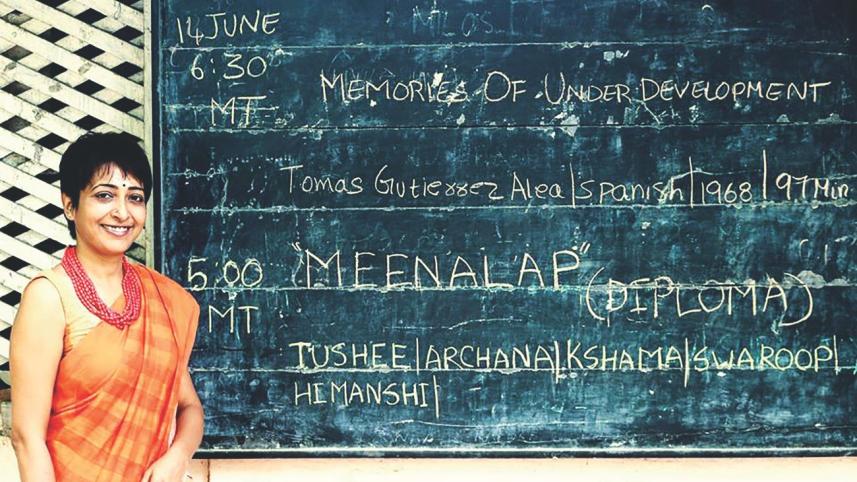 14 JUNE
6:30 MEMORIES OF UNDER DEVELOPMENT
MT
Tomas Gutierrez Alea | Spanish | 1968 | 97 Min
5:00 "MEENALAP" (DIPLOMA)
MT
TUSHEE | ARCHANA | KSHAMA | SWAROOP |
HIMANSHI |